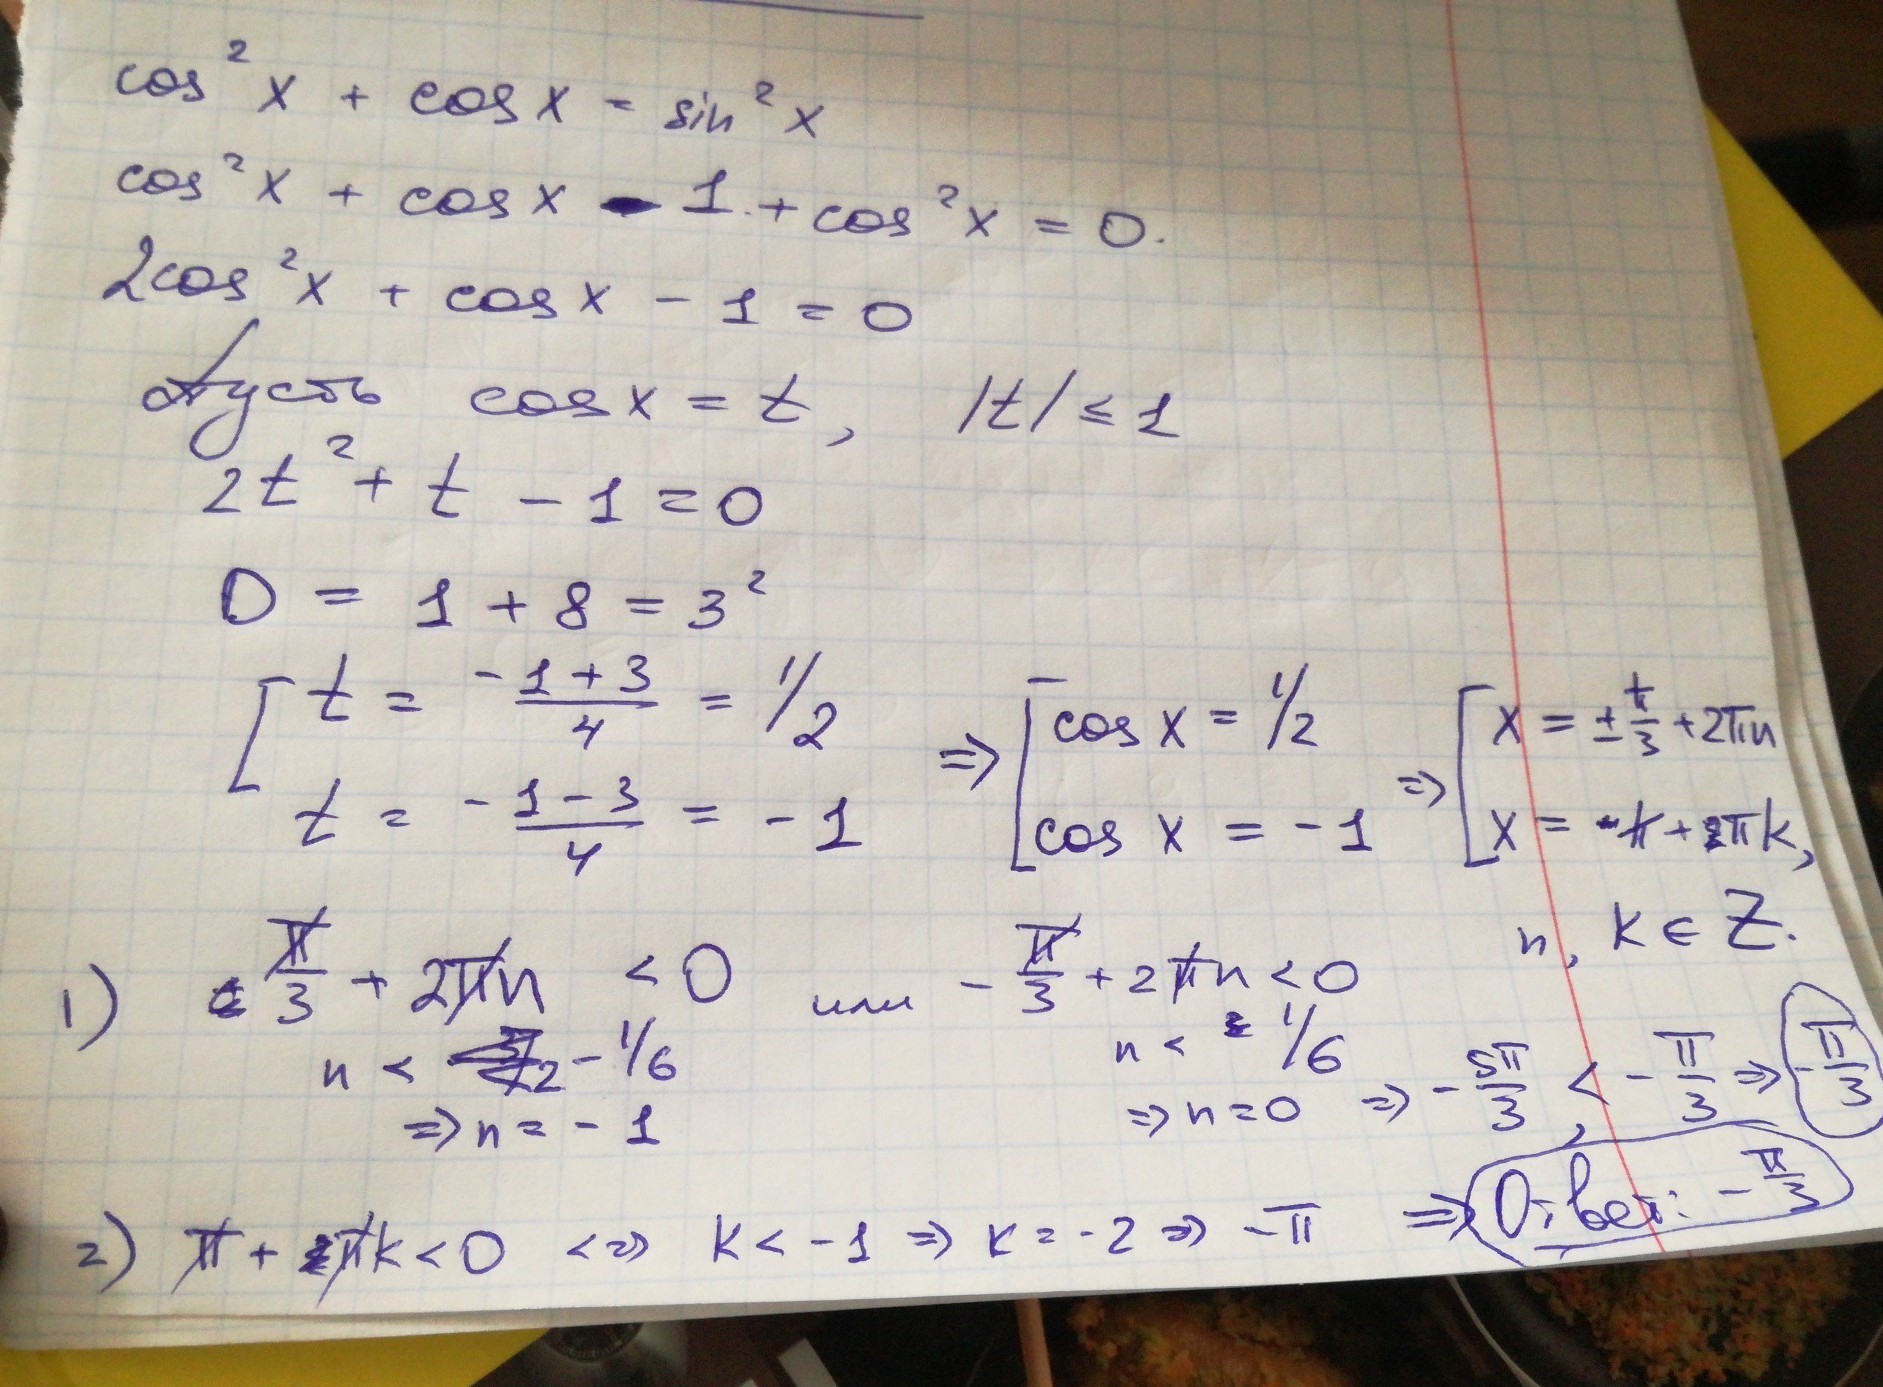 cos²x + cos x = sin²x
cos²x + cos x - 1 + cos²x = 0.
2cos²x + cos x - 1 = 0
Пусть cos x = t, |t| ≤ 1
2t² + t - 1 = 0
D = 1 + 8 = 3²
[ t = (-1+3)/4 = 1/2 ⇒ [ cos x = 1/2 ⇒ [ x = ± π/3 + 2πn
t = (-1-3)/4 = -1 cos x = -1 x = π + 2πk,
n, k ∈ Z.
1) π/3 + 2πn < 0 или - π/3 + 2πn < 0
n < - 1/6 n < 1/6
⇒ n = - 1 ⇒ n = 0 ⇒ - 5π/3 < - π/3 ⇒ - π/3
2) π + πk < 0 <=> k < -1 ⇒ k = -2 ⇒ -π ⇒ Ответ: - π/3